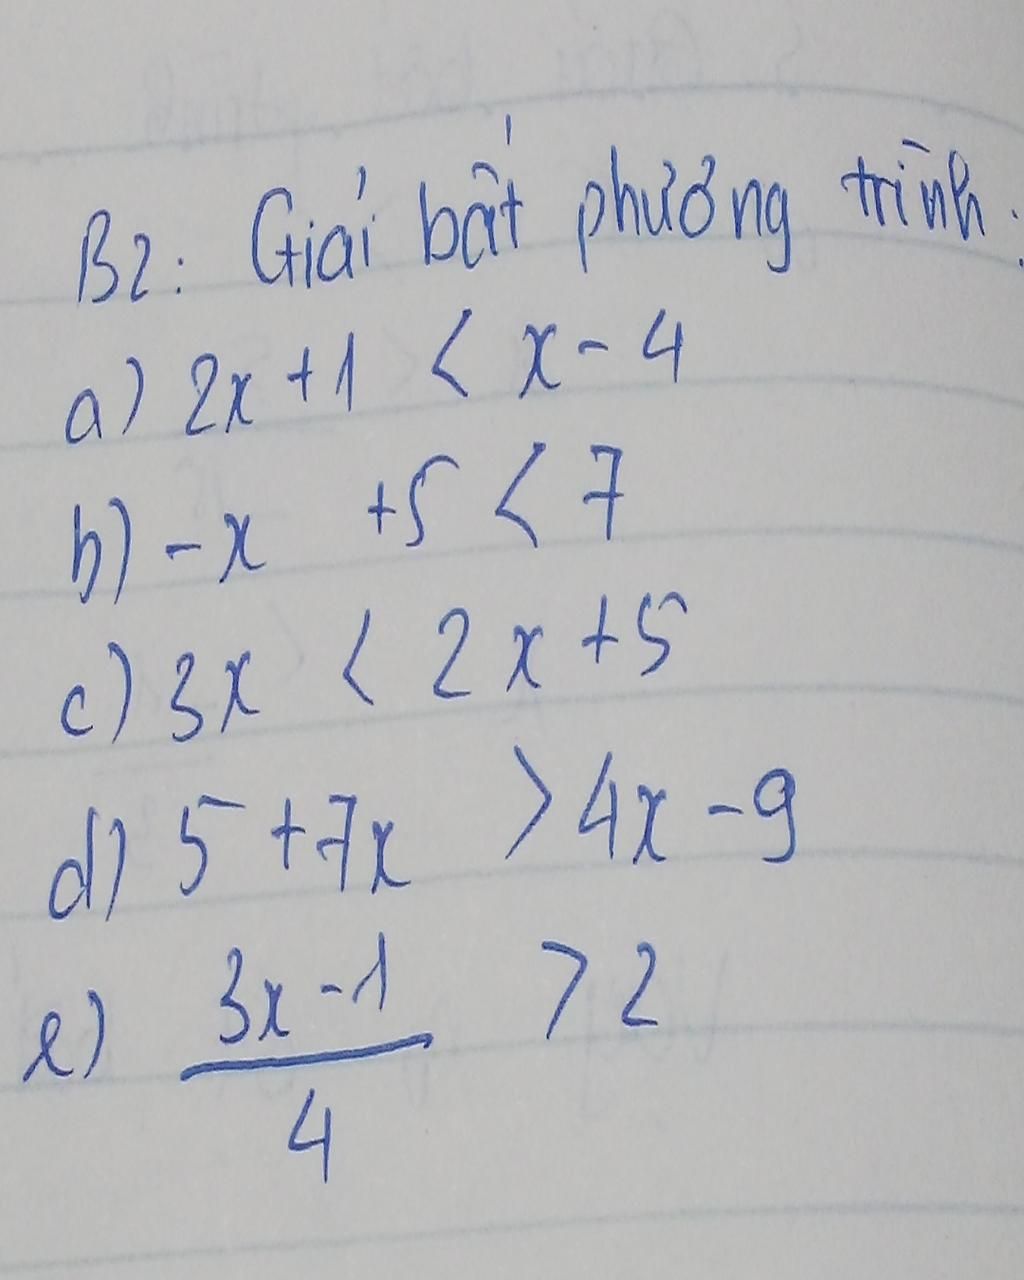 B2: Giải bất phương trình:
a) 2x + 1 < x - 4
b) -x +5 < 7
c) 3x < 2x +5
d) 5 + 7x > 4x - 9
e) 3x - 1 > 2
4